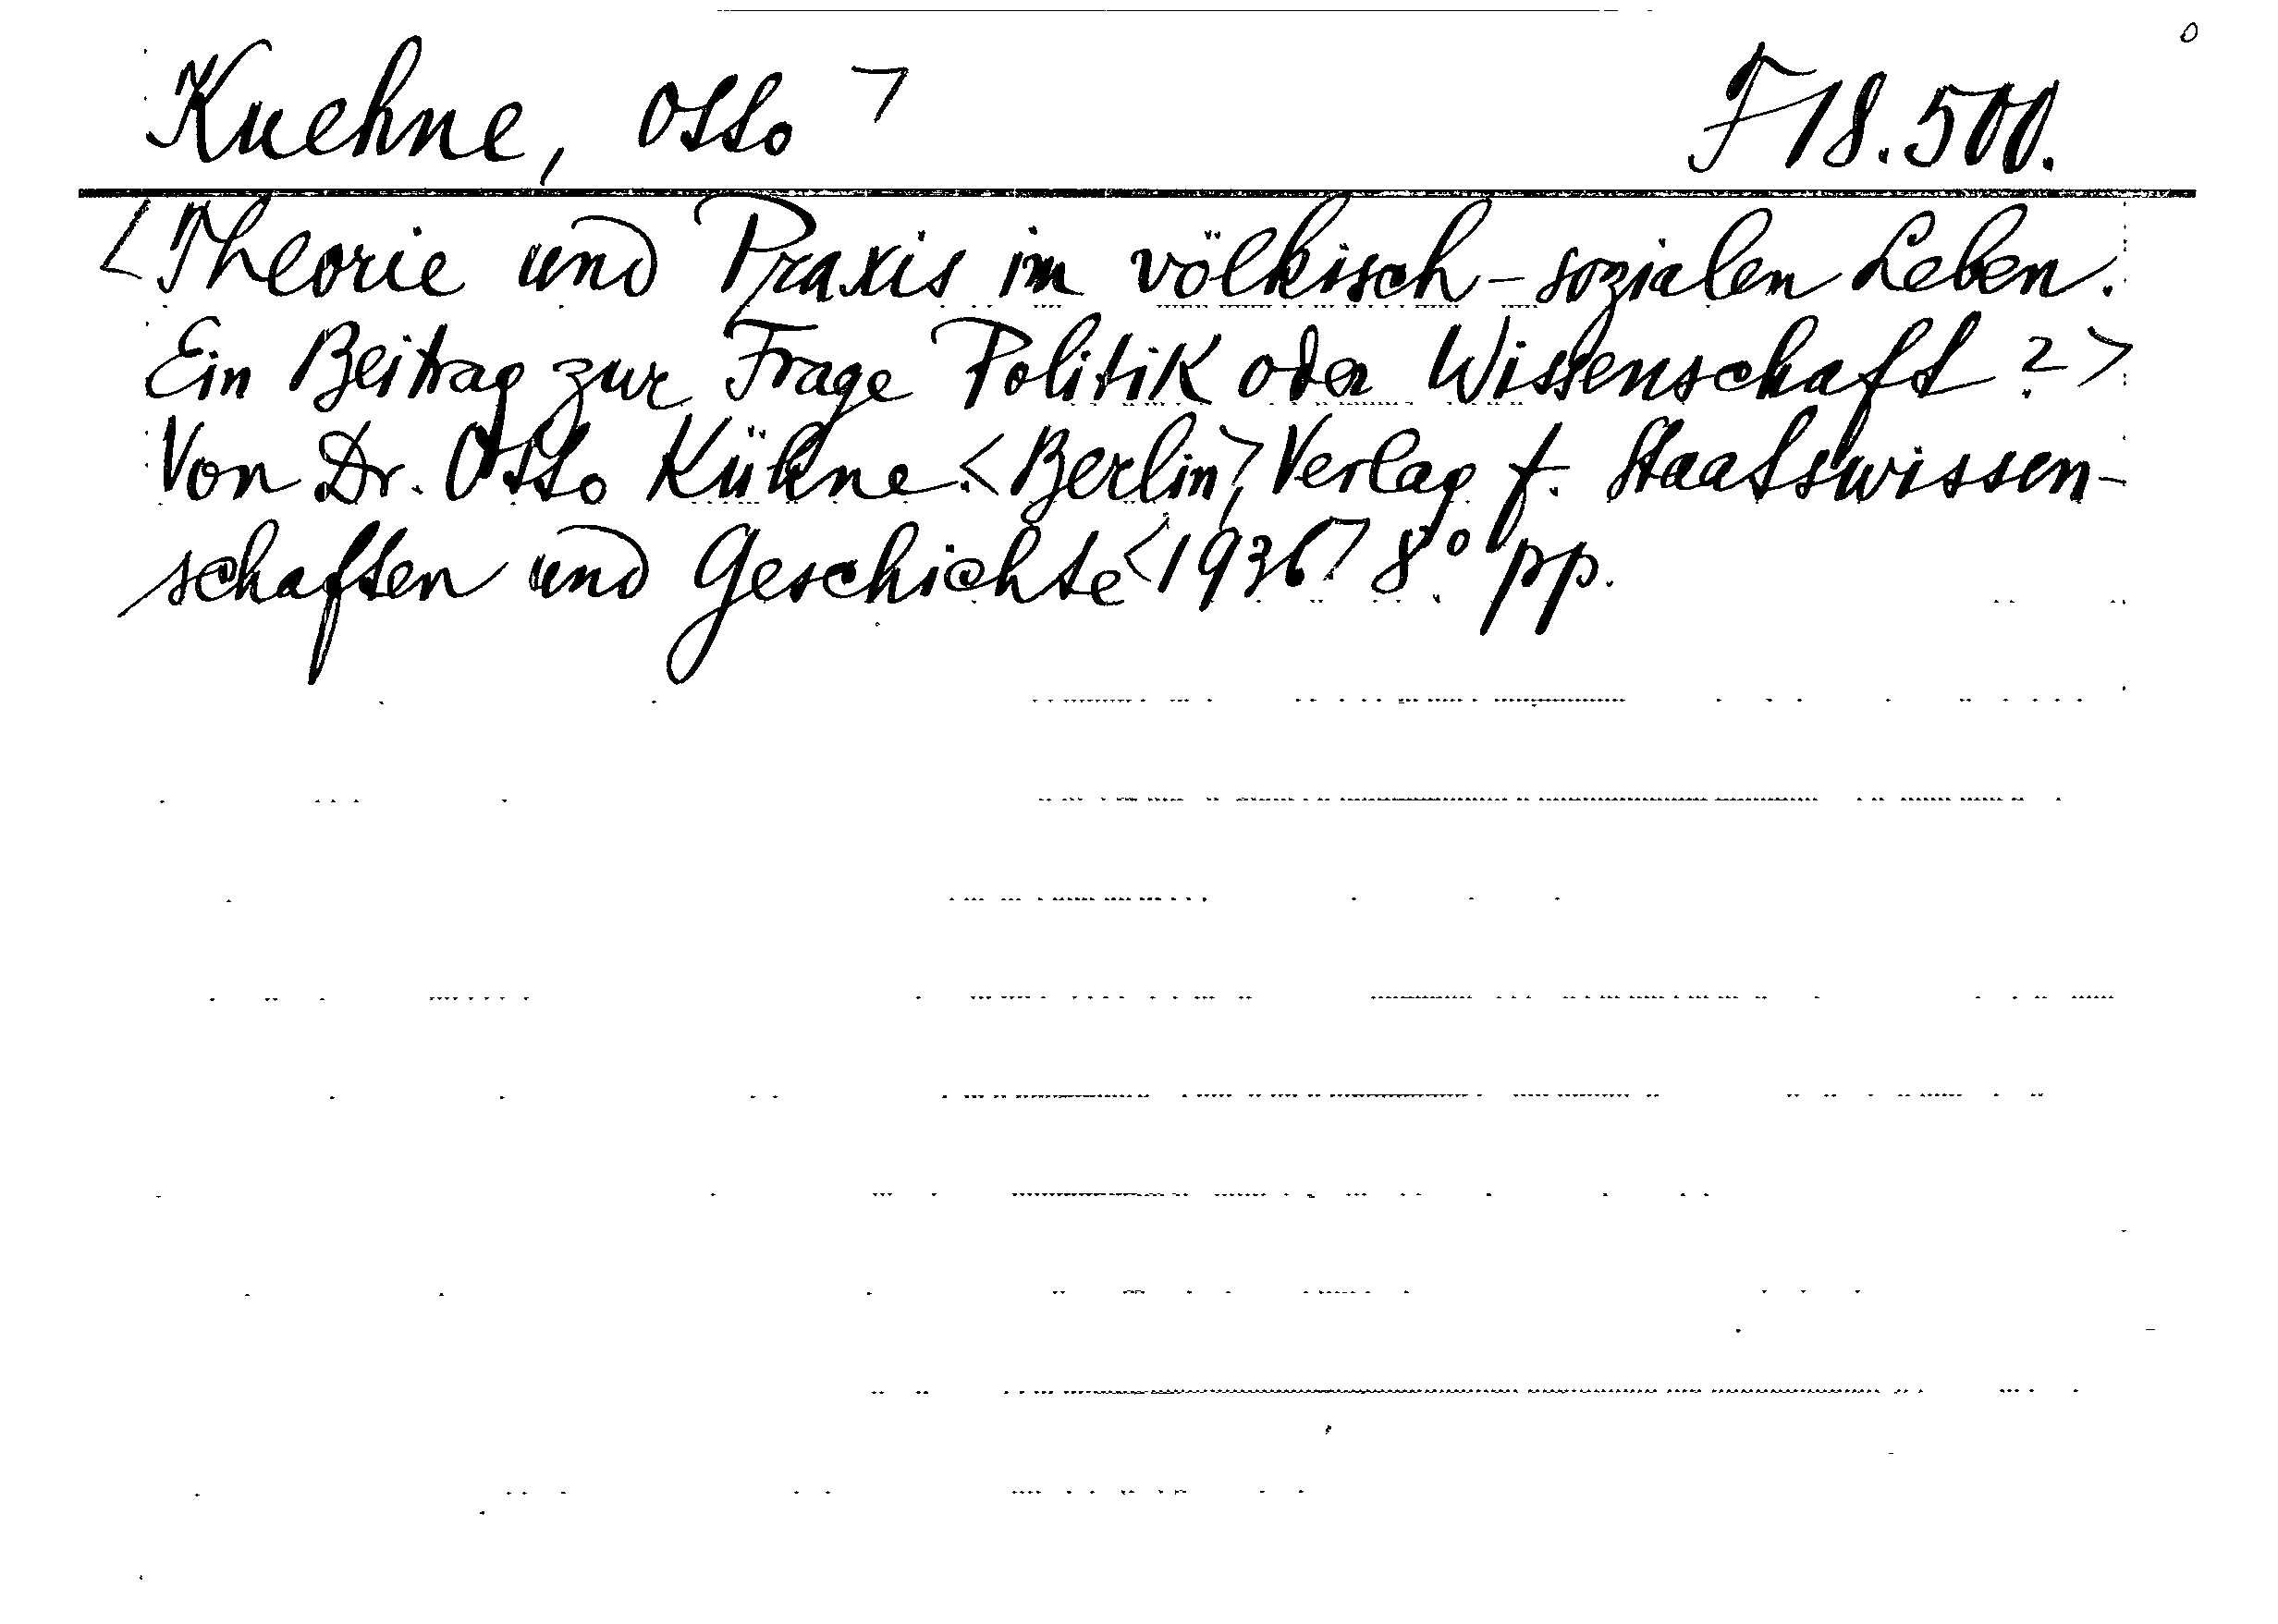 Kuehne, Otto > F 18.500.
<Theorie und Praxis im völkisch-sozialen Leben.
Ein Beitrag zur Frage Politik oder Wissenschaft?>
Von Dr. Otto Kühne.<Berlin>, Verlag f. Staatswissen-
schaften und Geschichte<1936> 8° pp.